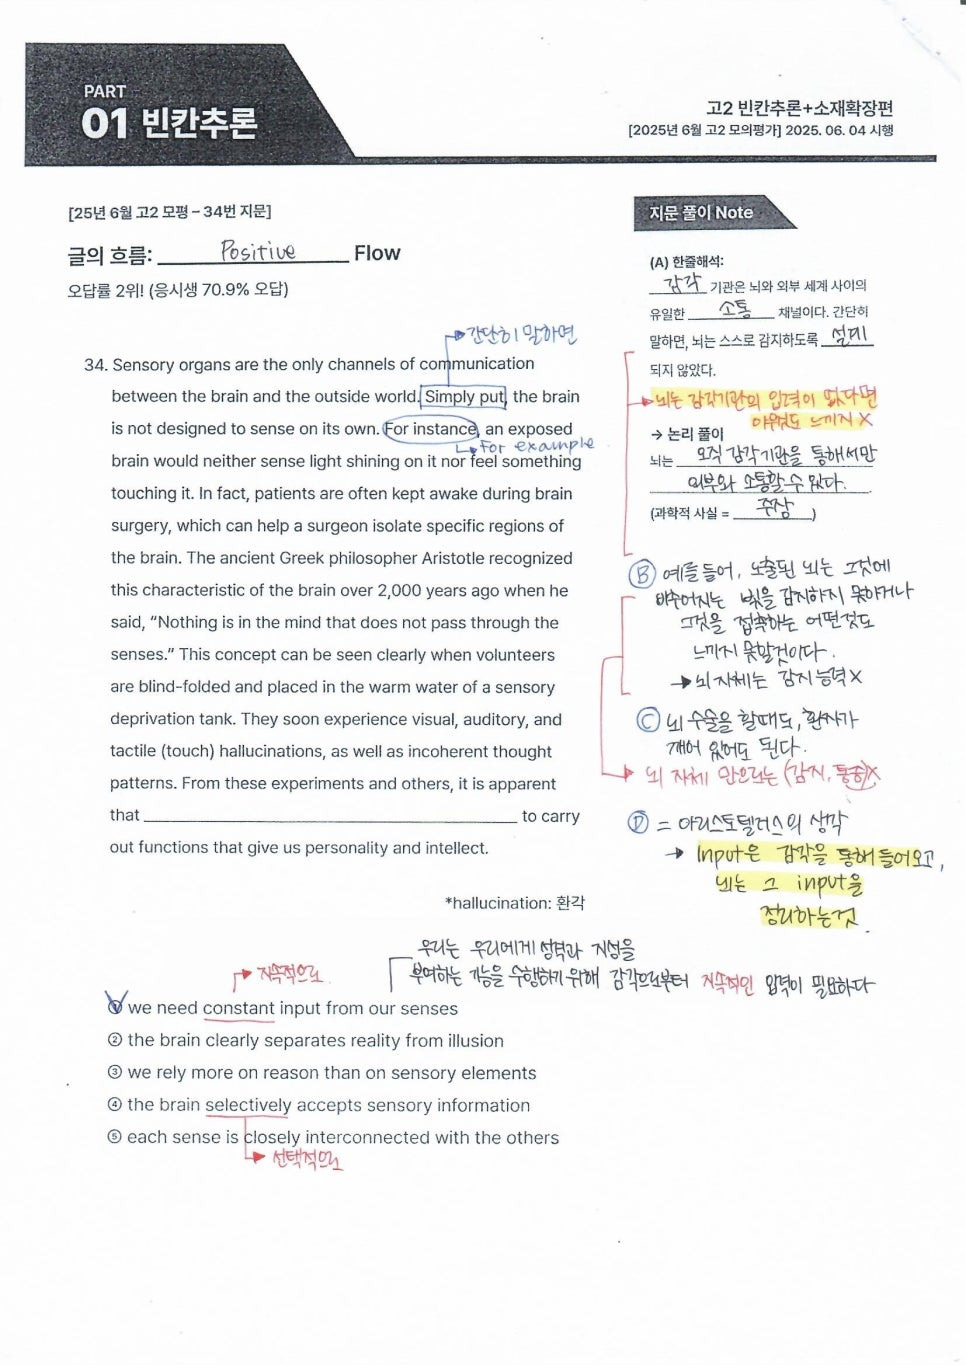 PART
01 빈칸추론
고2 빈칸추론+소재확장편
[2025년 6월 고2 모의평가] 2025. 06. 04 시행
[25년 6월 고2 모평 – 34번 지문]
글의 흐름: Positive Flow
오답률 2위! (응시생 70.9% 오답)
간단히 말하면
34. Sensory organs are the only channels of communication
between the brain and the outside world. Simply put, the brain
is not designed to sense on its own. For instance, an exposed
For example
brain would neither sense light shining on it nor feel something
touching it. In fact, patients are often kept awake during brain
surgery, which can help a surgeon isolate specific regions of
the brain. The ancient Greek philosopher Aristotle recognized
this characteristic of the brain over 2,000 years ago when he
said, “Nothing is in the mind that does not pass through the
senses.” This concept can be seen clearly when volunteers
are blind-folded and placed in the warm water of a sensory
deprivation tank. They soon experience visual, auditory, and
tactile (touch) hallucinations, as well as incoherent thought
patterns. From these experiments and others, it is apparent
that to carry
out functions that give us personality and intellect.
*hallucination: 환각
우리는 우리에게 성격과 지성을
부여하는 기능을 수행하기 위해 감각으로부터 지속적인 입력이 필요하다
지속적으로
① we need constant input from our senses
② the brain clearly separates reality from illusion
③ we rely more on reason than on sensory elements
④ the brain selectively accepts sensory information
⑤ each sense is closely interconnected with the others
선택적으로
지문 풀이 Note
(A) 한줄해석:
감각 기관은 뇌와 외부 세계 사이의
유일한 소통 채널이다. 간단히
말하면, 뇌는 스스로 감지하도록 설계
되지 않았다.
뇌는 감각기관의 입력이 없다면
아무것도 느끼지 X
→ 논리 풀이
뇌는 오직 감각기관을 통해서만
외부와 소통할 수 있다.
(과학적 사실 = 주장)
Ⓑ 예를 들어, 노출된 뇌는 그것에
비추어지는 빛을 감지하지 못하거나
그것을 접촉하는 어떤것도
느끼지 못할것이다.
→ 뇌 자체는 감지 능력 X
Ⓒ 뇌 수술을 할때도, 환자가
깨어 있어도 된다.
뇌 자체 만으로는 (감지, 통증) X
Ⓓ = 아리스토텔레스의 생각
→ Input은 감각을 통해 들어오고,
뇌는 그 input을
정리하는것.